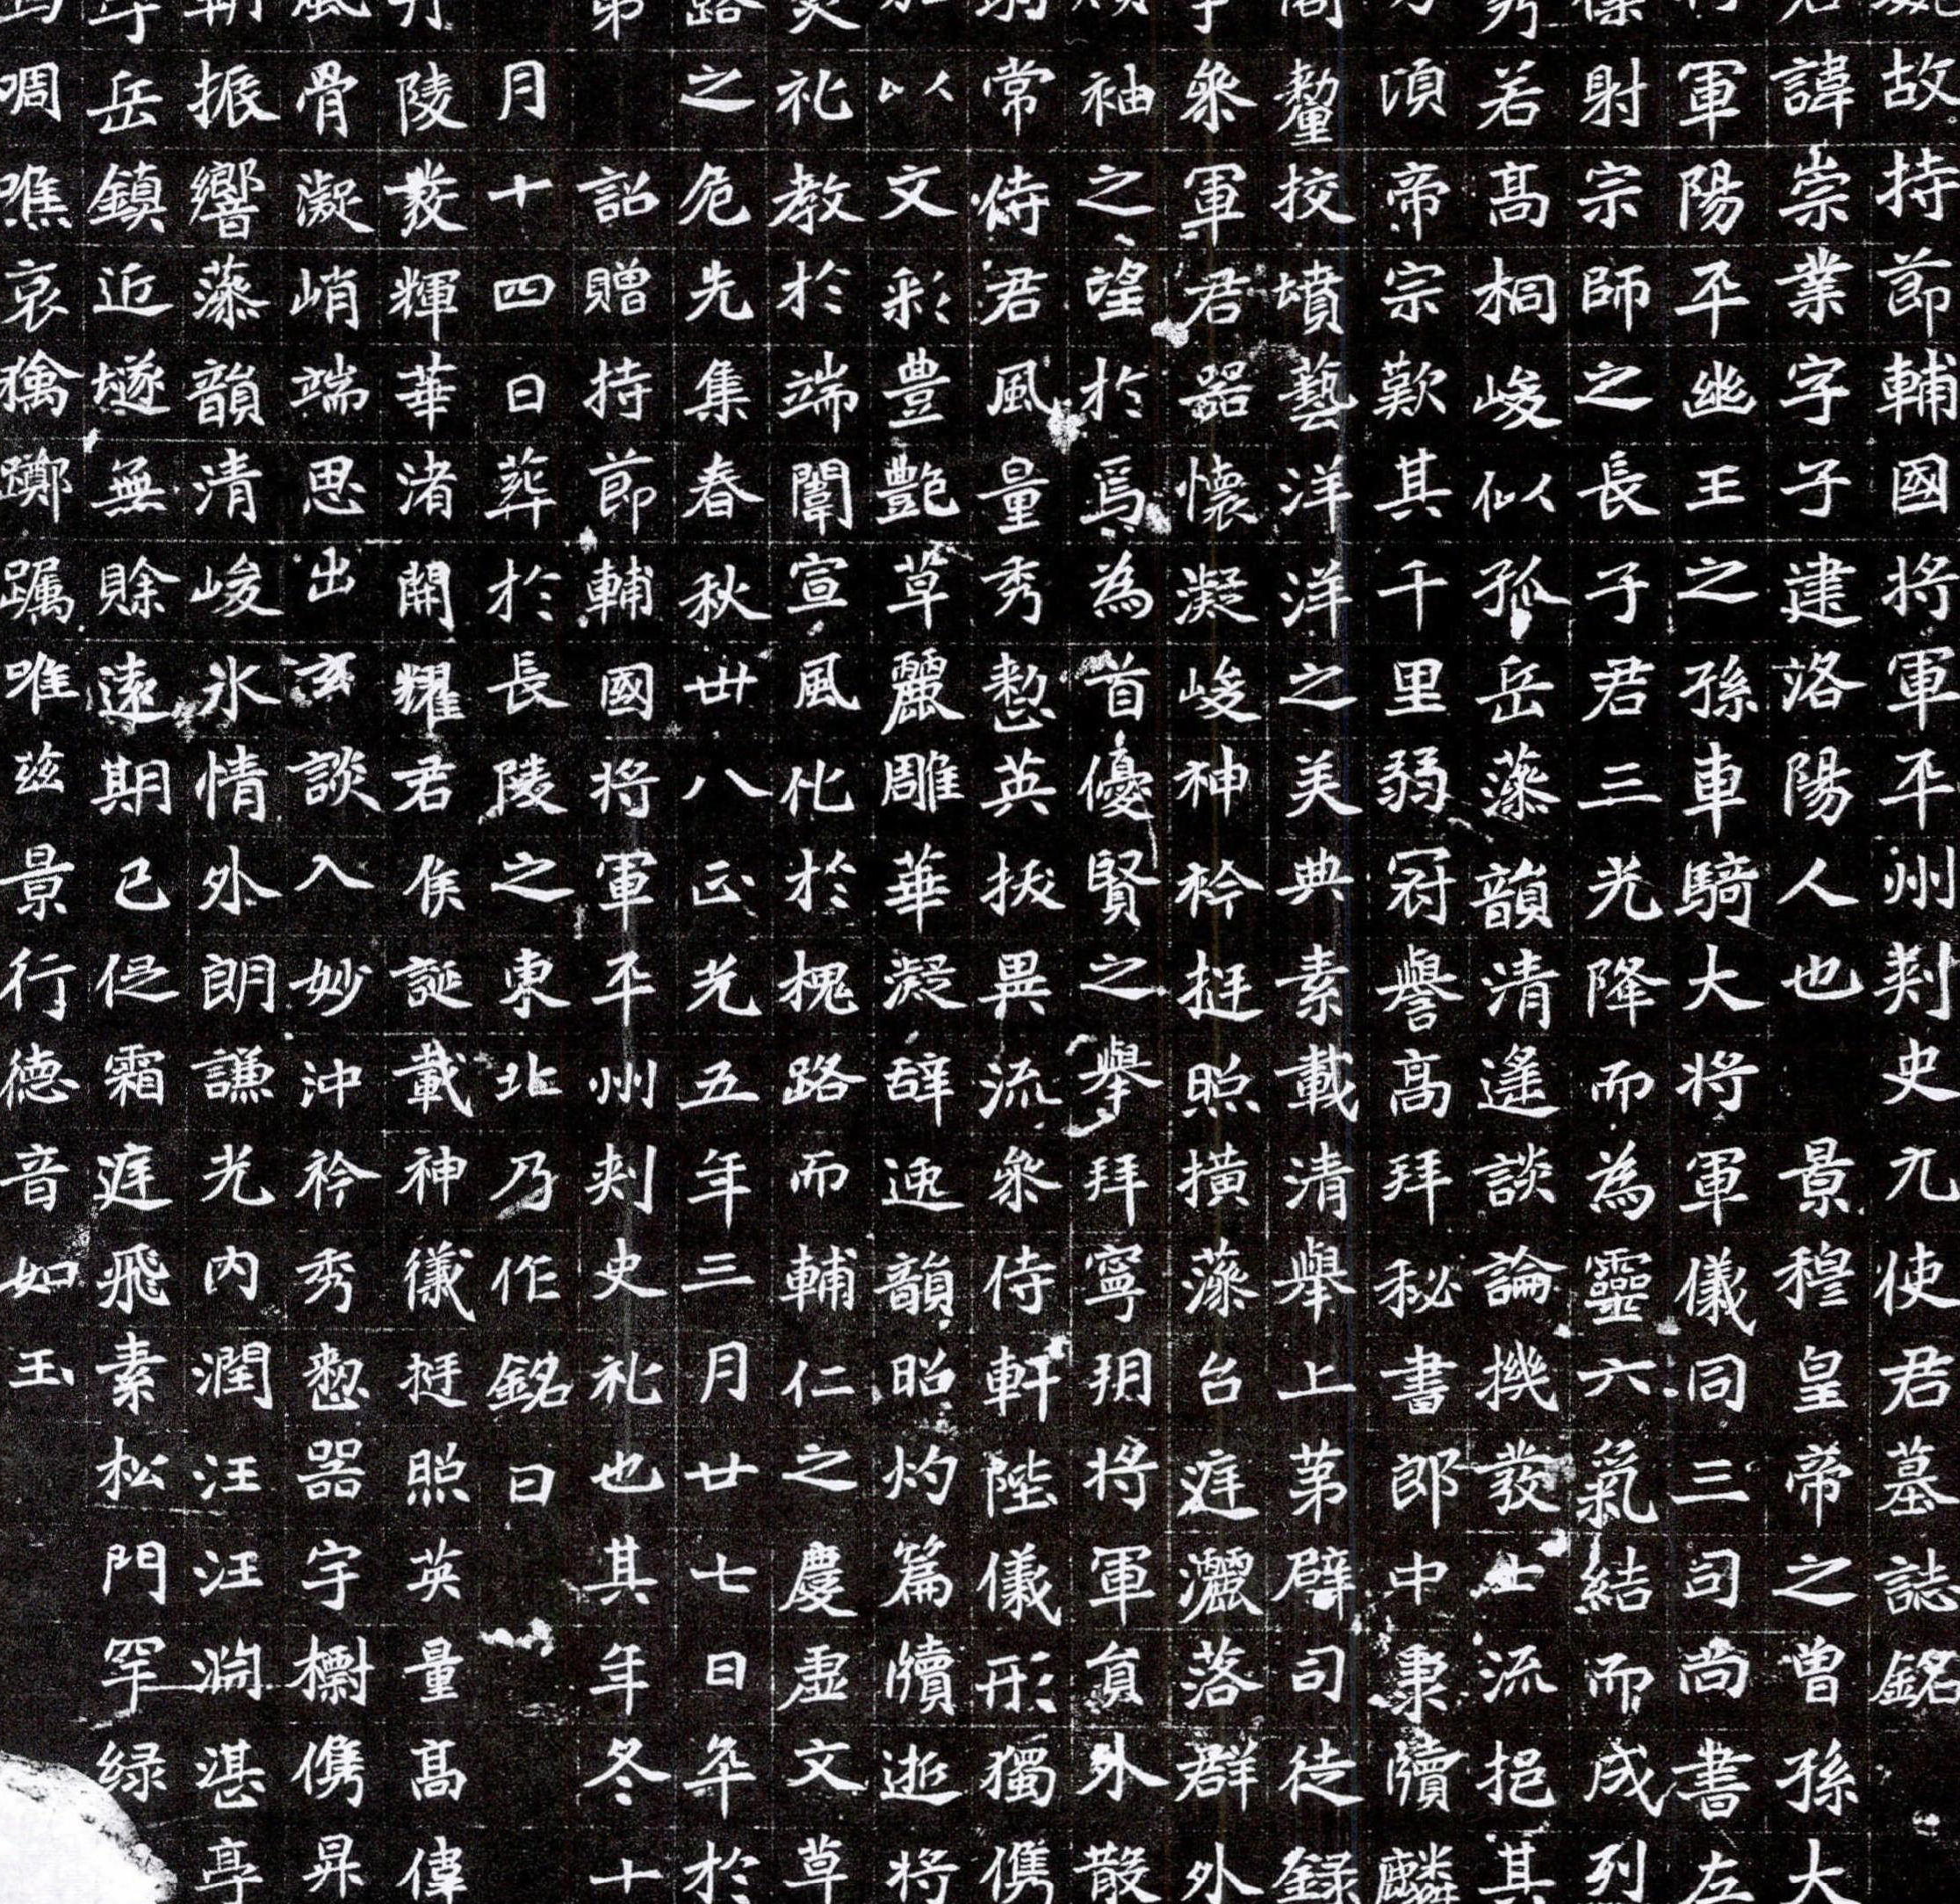 故持節輔國將軍平州刾史元使君墓誌銘
諱崇業字子建洛陽人也　景穆皇帝之曾孫大
軍陽平幽王之孫車騎大將軍儀同三司尚書左
射宗師之長子君三光降而為靈六氣結而成列
若高桐峻似孤岳藻韻清遙談論機發士流挹其
頃帝宗歎其千里弱冠譽高拜秘書郎中秉牘麟
䥫校墳藝洋洋之美典素載清舉上第辟司徒錄
叅軍君器懷凝峻神衿挺照撗藻台庭灑落群外
袖之望於焉為首優賢之舉拜寧玥將軍負外散
常侍君風量秀慜英拔異流叅侍軒陛儀形獨儁
以文彩豊艷草麗雕華凝辝逸韻昭灼篇牘逝將
礼教於端闈宣風化於槐路而輔仁之慶虛文草
之危先集春秋卅八正光五年三月廿七日卒於
詔贈持節輔國將軍平州刾史礼也其年冬十
月十四日葬於長陵之東北乃作銘曰
陵叢輝華渚開耀君侯誕載神儀挺照英量高偉
骨凝峭端思出玄談入妙沖衿秀慜器宇欄儁昇
振響藻韻清峻氷情外朗謙光內潤汪汪淵湛亭
岳鎮近墜無賒遠期已促霜庭飛素松門罕緑
啁噍哀㺅躑躅唯玆景行德音如玉